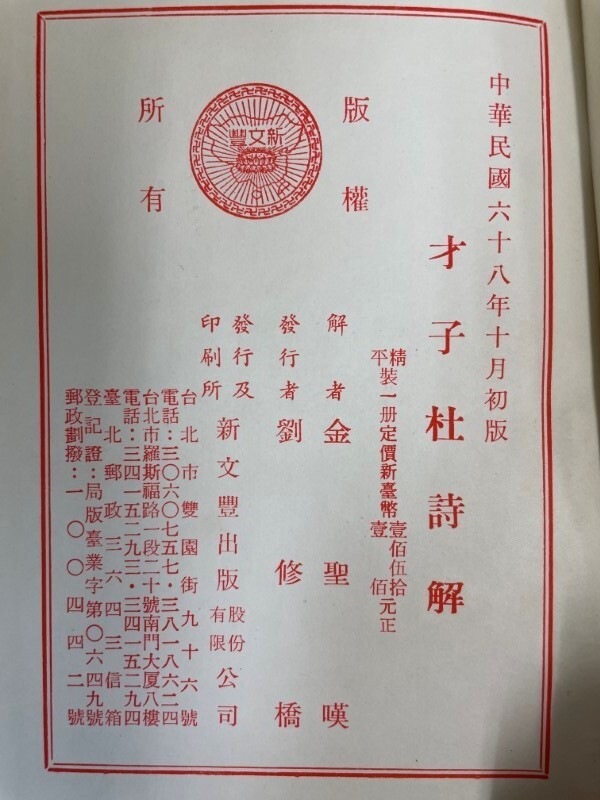 中華民國六十八年十月初版
版權
所有
新文豐
才子杜詩解
精平裝一冊定價新臺幣壹佰伍拾壹佰元正
解者 金聖嘆
發行者 劉修橋
發行及印刷所 新文豐出版股份有限公司
台北市雙園街九十六號
電話：三〇六〇七五七・三八一八六二四
台北市羅斯福路一段二十號南門大厦八樓
電話：三四一五二九三・三四一五二九四
臺北郵政三六四三信箱
登記證：局版臺業字第〇六四九號
郵政劃撥：一〇〇四四二號